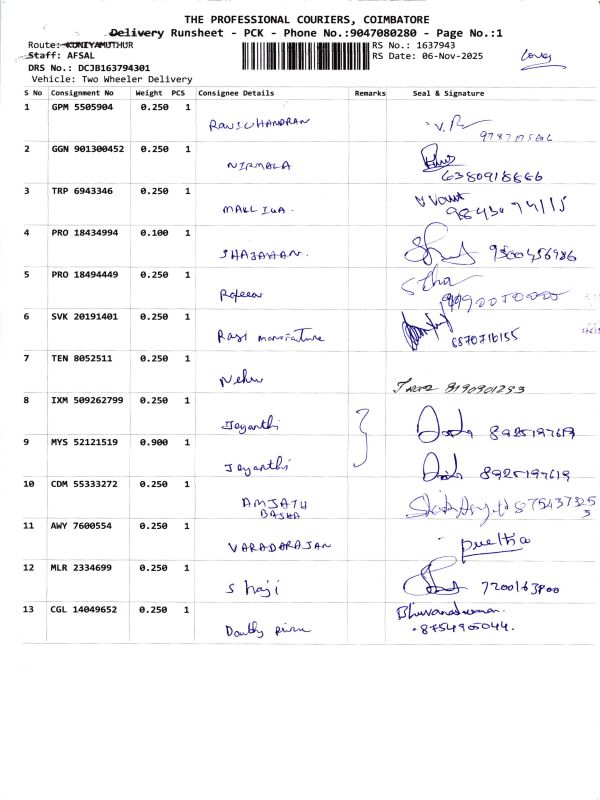 THE PROFESSIONAL COURIERS, COIMBATORE
Delivery Runsheet - PCK - Phone No.:9047080280 - Page No.:1
Route: KUNIYAMUTHUR
RS No.: 1637943
Staff: AFSAL
RS Date: 06-Nov-2025
DRS No.: DCJB163794301
Vehicle: Two Wheeler Delivery
S No Consignment No Weight PCS Consignee Details Remarks Seal & Signature
1 GPM 5505904 0.250 1
RAVICHANDRAN
2 GGN 901300452 0.250 1
NIRMALA
6380918666
3 TRP 6943346 0.250 1
MALLIGA.
98430 74115
4 PRO 18434994 0.100 1
SHAJAHAN. 9500456986
5 PRO 18494449 0.250 1
Rafeeq
6 SVK 20191401 0.250 1
Rasi manufature 8870716155
7 TEN 8052511 0.250 1
Nehru 8190901233
8 IXM 509262799 0.250 1
Jeyanthi 8925197619
9 MYS 52121519 0.900 1
Jeyanthi 8925197619
10 CDM 55333272 0.250 1
AMJATH
BASHA
8754373253
11 AWY 7600554 0.250 1
VARADARAJAN
12 MLR 2334699 0.250 1
Shaji 7200163800
13 CGL 14049652 0.250 1
8754905044.